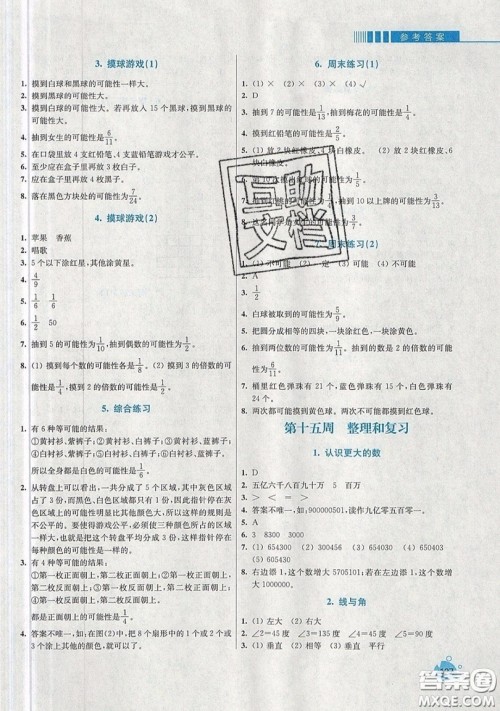 参考答案
3. 摸球游戏(1)
1. 摸到白球和黑球的可能性一样大。
2. 摸到黑球的可能性大。
3. 摸到白球的可能性大。若再放入 15 个黑球，摸到黑球的可能性大。
4. 抽到女生的可能性是6/11。
5. 在口袋里放 4 支红铅笔、4 支蓝铅笔游戏才公平。
6. 至少应在盒子里再放 3 枚白子。
7. 应在盒子里再放 4 枚黑子。
8. 落在黑色方块处的可能性是7/24。
4. 摸球游戏(2)
1. 苹果 香蕉
2. 唱歌
3. 5 个以下涂红星，其他涂黄星。
4. 4/9
5. 1/6 1/6
6. 1/2 50
7. 抽到 5 的可能性为1/10，抽到偶数的可能性为1/2。
8. (1) 摸到每个数的可能性各是1/8。 (2) 摸到 3 的倍数的可能性是1/4，摸到 2 的倍数的可能性是1/2。
5. 综合练习
1. 有 6 种等可能的结果：
①黄衬衫、紫裤子；②黄衬衫、白裤子；③黄衬衫、蓝裤子；
④白衬衫、紫裤子；⑤白衬衫、白裤子；⑥白衬衫、蓝裤子；
所以全身都是白色的可能性是1/6。
2. 从转盘上可以看出，一共分成了 5 个区域，其中灰色区域占了 3 份，而黑色、白色区域都只有 1 份，因此指针停在灰色区域上的可能性明显比其他颜色可能性大，所以这样的规则是不公平的。要使得游戏公平，必须使三种颜色所占的区域一样大，也就是把这个转盘平均分成三份，因此指针停在每种颜色的可能性就一样了。
3. 有 4 种等可能的结果：
①第一枚正面朝上，第二枚正面朝上；②第一枚正面朝上，第二枚反面朝上；③第一枚反面朝上，第二枚正面朝上；
④第一枚反面朝上，第二枚反面朝上，所以两枚都是正面朝上的可能性是1/4。
4. 答案不唯一，如：在图(2)中，把 8 个扇形中的 1 个或 2 个或 3 个涂上其他的颜色，就可以了。
6. 周末练习(1)
1. (1) × (2) × (3) × (4) √
2. D
3. 抽到 7 的可能性是1/13，抽到梅花的可能性是1/4。
4. 摸到红铅笔的可能性是2/5。
5. (1) 放 2 块红橡皮、4 块白橡皮。
块白橡皮。
抽到 10 以上的牌的可能性是3/13。
7. 周末练习(2)
1. (1) 不可能 (3) 可能 (4) 不可能
2. D
3. 1/2
4. 白球被取到的可能性为5/9。
5. 把圆分成相等的四块，一块涂红色，一块涂黄色。
6. 抽到两位数的可能性为1/2，抽到 3 的倍数的可能性为6/11。
7. 桶里红色弹珠有 21 个，蓝色弹珠有 15 个，白色弹珠有 14 个。
8. 两次都可能摸到黄球。两次不可能都摸到红色球。
第十五周 整理和复习
1. 认识更大的数
1. D
2. 五亿六千八百九十万 5 百万
3. ＞ ＜ ＝ ＞
4. 答案不唯一，如：900000501，读作九亿零五百零一。
5. A
6. 3 8300 3000
7. (1) 654300 (2) 300456 (3) 653400
(4) 530400 (5) 654003
8. 右边添 1，这个数增大 5705101；若在左边添 1，这个数增大 1000000。
2. 线与角
1. (1) 左大 (2) 右大
2. ∠2=45 度 ∠3=135 度 ∠4=45 度 ∠5=90 度
3. (1) 垂直 (2) 相等 (3) 垂直 平行
互助
文档
答案圈
MXQE.COM